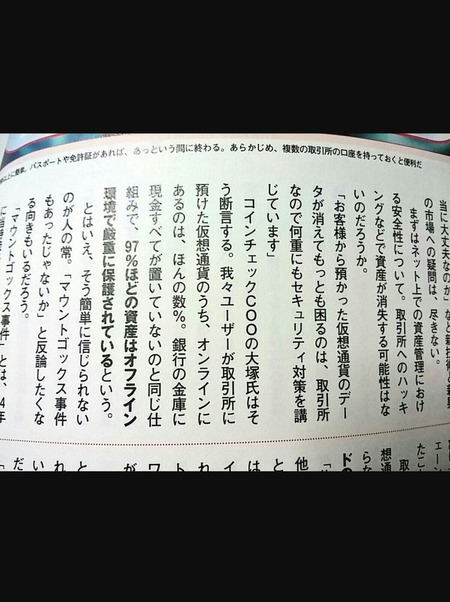 簡単。パスポートや免許証があれば、あっという間に終わる。あらかじめ、複数の取引所の口座を持っておくと便利だ
当に大丈夫なのか」など新技術と新興
の市場への疑問は、尽きない。
まずはネット上での資産管理におけ
る安全性について。取引所へのハッキ
ングなどで資産が消失する可能性はな
いのだろうか。
「お客様から預かった仮想通貨のデー
タが消えてもっとも困るのは、取引所
なので何重にもセキュリティ対策を講
じています」
コインチェックCOOの大塚氏はそ
う断言する。我々ユーザーが取引所に
預けた仮想通貨のうち、オンラインに
あるのは、ほんの数%。銀行の金庫に
現金すべてが置いていないのと同じ仕
組みで、97%ほどの資産はオフライン
環境で厳重に保護されているという。
とはいえ、そう簡単に信じられない
のが人の常。「マウントゴックス事件
もあったじゃないか」と反論したくな
る向きもいるだろう。
「マウントゴックス事件」とは、